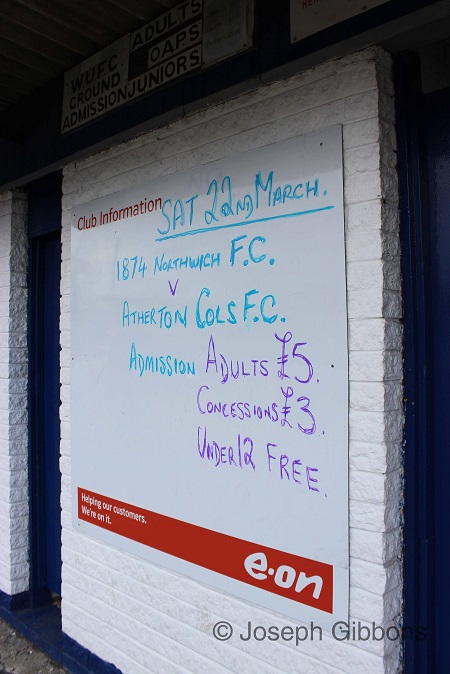 WUFC
GROUND
ADMISSION
ADULTS
OAPS
JUNIORS
Club Information
SAT 22ND MARCH.
1874 NORTHWICH F.C.
V
ATHERTON COLS F.C.
ADMISSION ADULTS £5.
CONCESSIONS £3.
UNDER 12 FREE.
Helping our customers.
We're on it.
e·on
© Joseph Gibbons